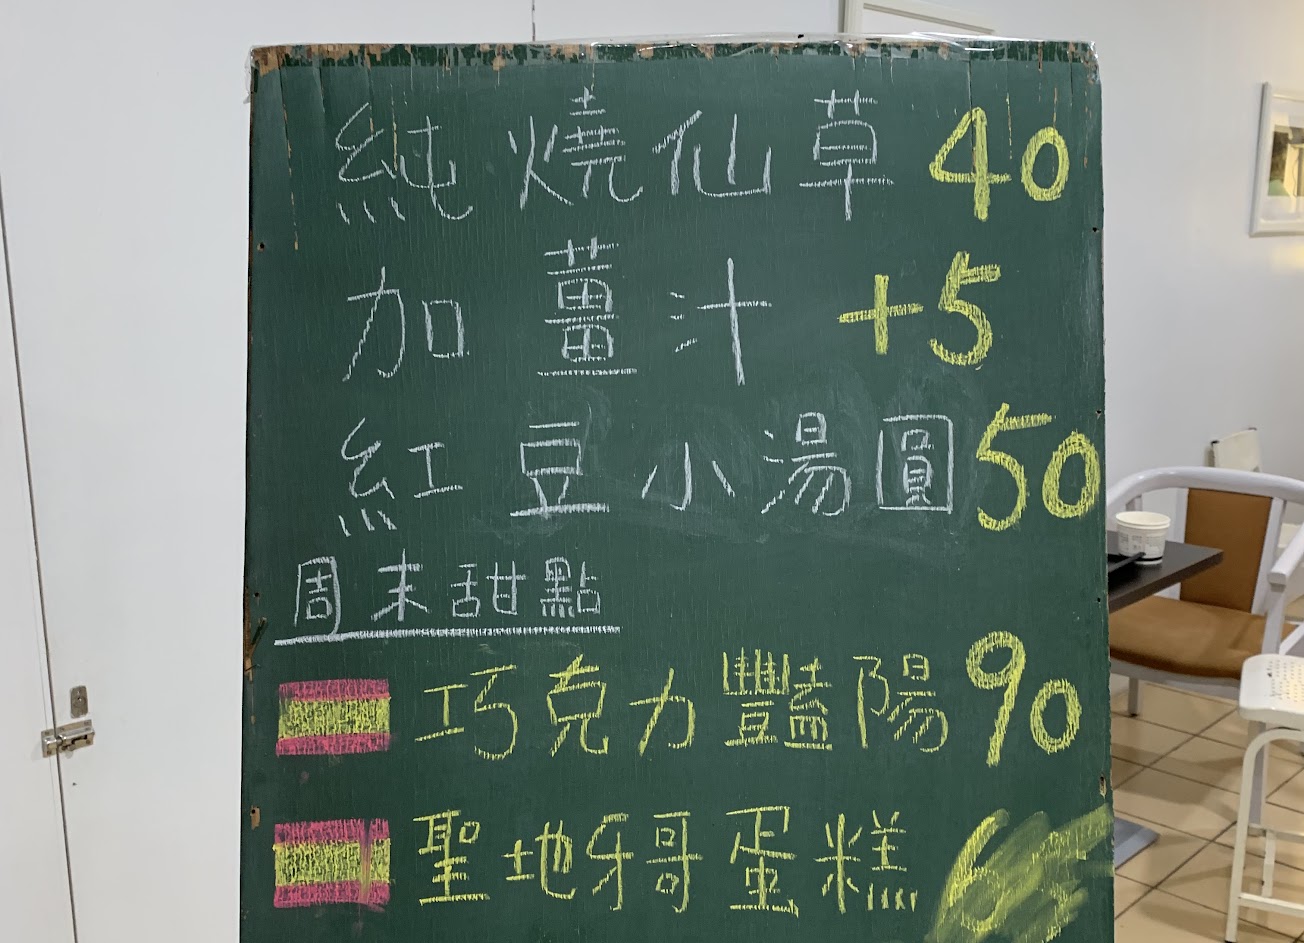 純燒仙草 40
加薑汁 +5
紅豆小湯圓 50
周末甜點
巧克力豔陽 90
聖地牙哥蛋糕